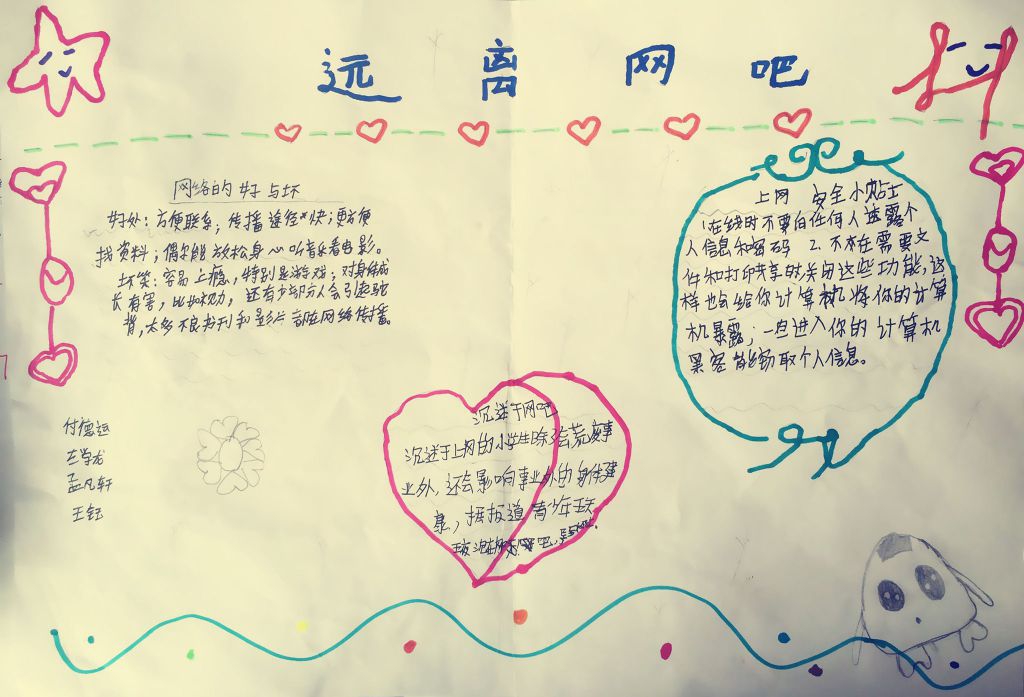 远离网吧
网络的好与坏
好处：方便联系；传播途径快；更方便
找资料；偶尔能放松身心听音乐看电影。
坏笑：容易上瘾，特别是游戏；对身体成
长有害，比如视力，还有少部分人会引起驼
背，太多不良书刊和影片都在网络传播。
上网 安全小贴士
1在线时不要向任何人透露个
人信息和密码 2. 不在需要文
件和打印共享时关闭这些功能，这
样也会给你计算机将你的计算
机暴露；一旦进入你的计算机
黑客能窃取个人信息。
沉迷于网吧
沉迷于上网的小学生除了会荒废事
业外，还会影响事业外的身体健
康，据报道青少年
付德
学龙
孟凡轩
王钰